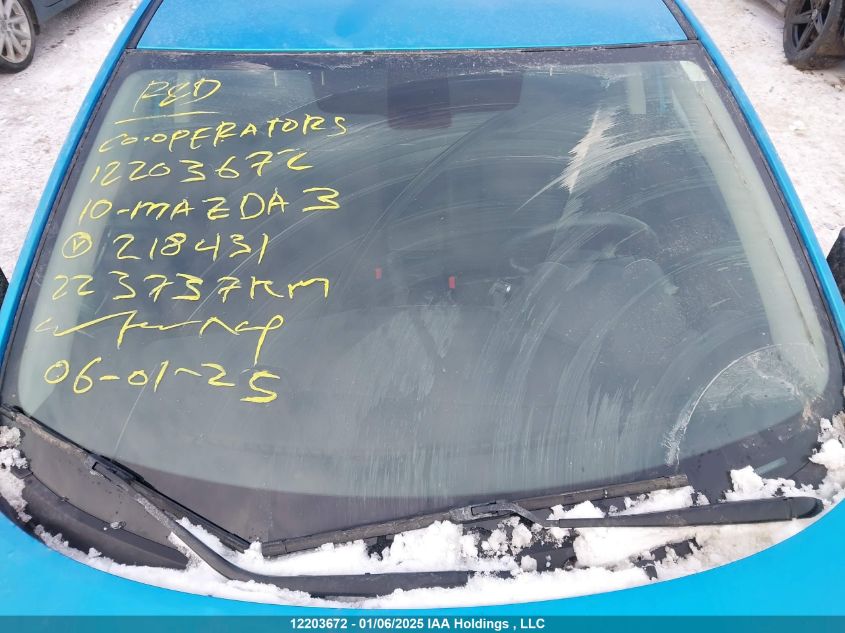 CO-OPERATORS
12203672
10-MAZDA 3
Ⓥ 218431
223737KM
06-01-25
12203672 - 01/06/2025 IAA Holdings , LLC